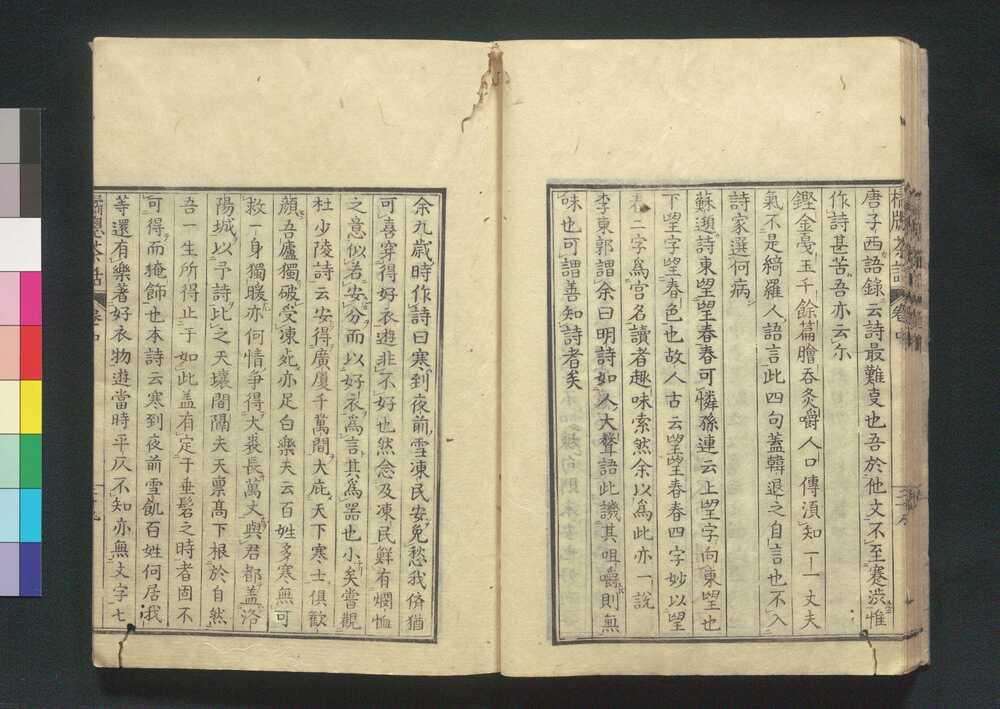 橘牕茶話
卷中
唐子西語錄云詩最難叓也吾於他文不至蹇澁惟
作詩甚苦吾亦云尓
鏗金戞玉千餘篇膾吞炙嚼人口傳湏知一一丈夫
氣不是綺羅人語言此四句蓋韓退之自言也不入
詩家選何病
蘇頲詩東望望春春可憐孫連云上望字向東望也
下望字望春色也故人古云望望春春四字妙以望
春二字爲宮名讀者趣味索然余以爲此亦一說
李東郭謂余曰明詩如人大聲語此譏其咀嚼則無
味也可謂善知詩者矣
余九歲時作詩曰寒到夜前雪凍民安免愁我儕猶
可喜穿得好衣遊非不好也然念及凍民鮮有憫恤
之意似若安分而以好衣爲言其爲器也小矣嘗觀
杜少陵詩云安得廣廈千萬間大庇天下寒士俱歡
顏吾廬獨破受凍死亦足白樂天云百姓多寒無可
救一身獨暖亦何情爭得大裘長萬丈與君都蓋洛
陽城以予詩比之天壤間隔夫天禀髙下根於自然
吾一生所得止于如此盖有定于垂髫之時者固不
可得而掩飾也本詩云寒到夜前雪飢百姓何居我
等還有樂著好衣物遊當時平仄不知亦無文字七
橘窻茶話
卷中